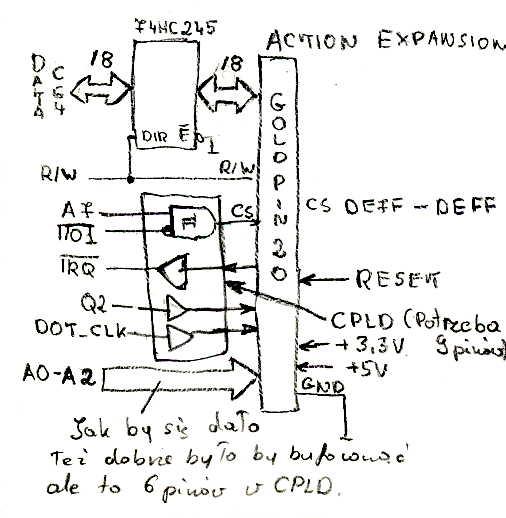 74HC245
ACTION EXPANSION
DATA
C64
/8
/8
DIR E
1
GOLDPIN 20
R/W
R/W
A7
I/O1
CS
CS DEFF - DEFF
IRQ
RESET
Q2
CPLD (Potrzeba
9 pinów)
DOT_CLK
+3,3V
+5V
A0-A2
GND
Jak by się dało
Też dobrze było by buforować
ale to 6 pinów w CPLD.